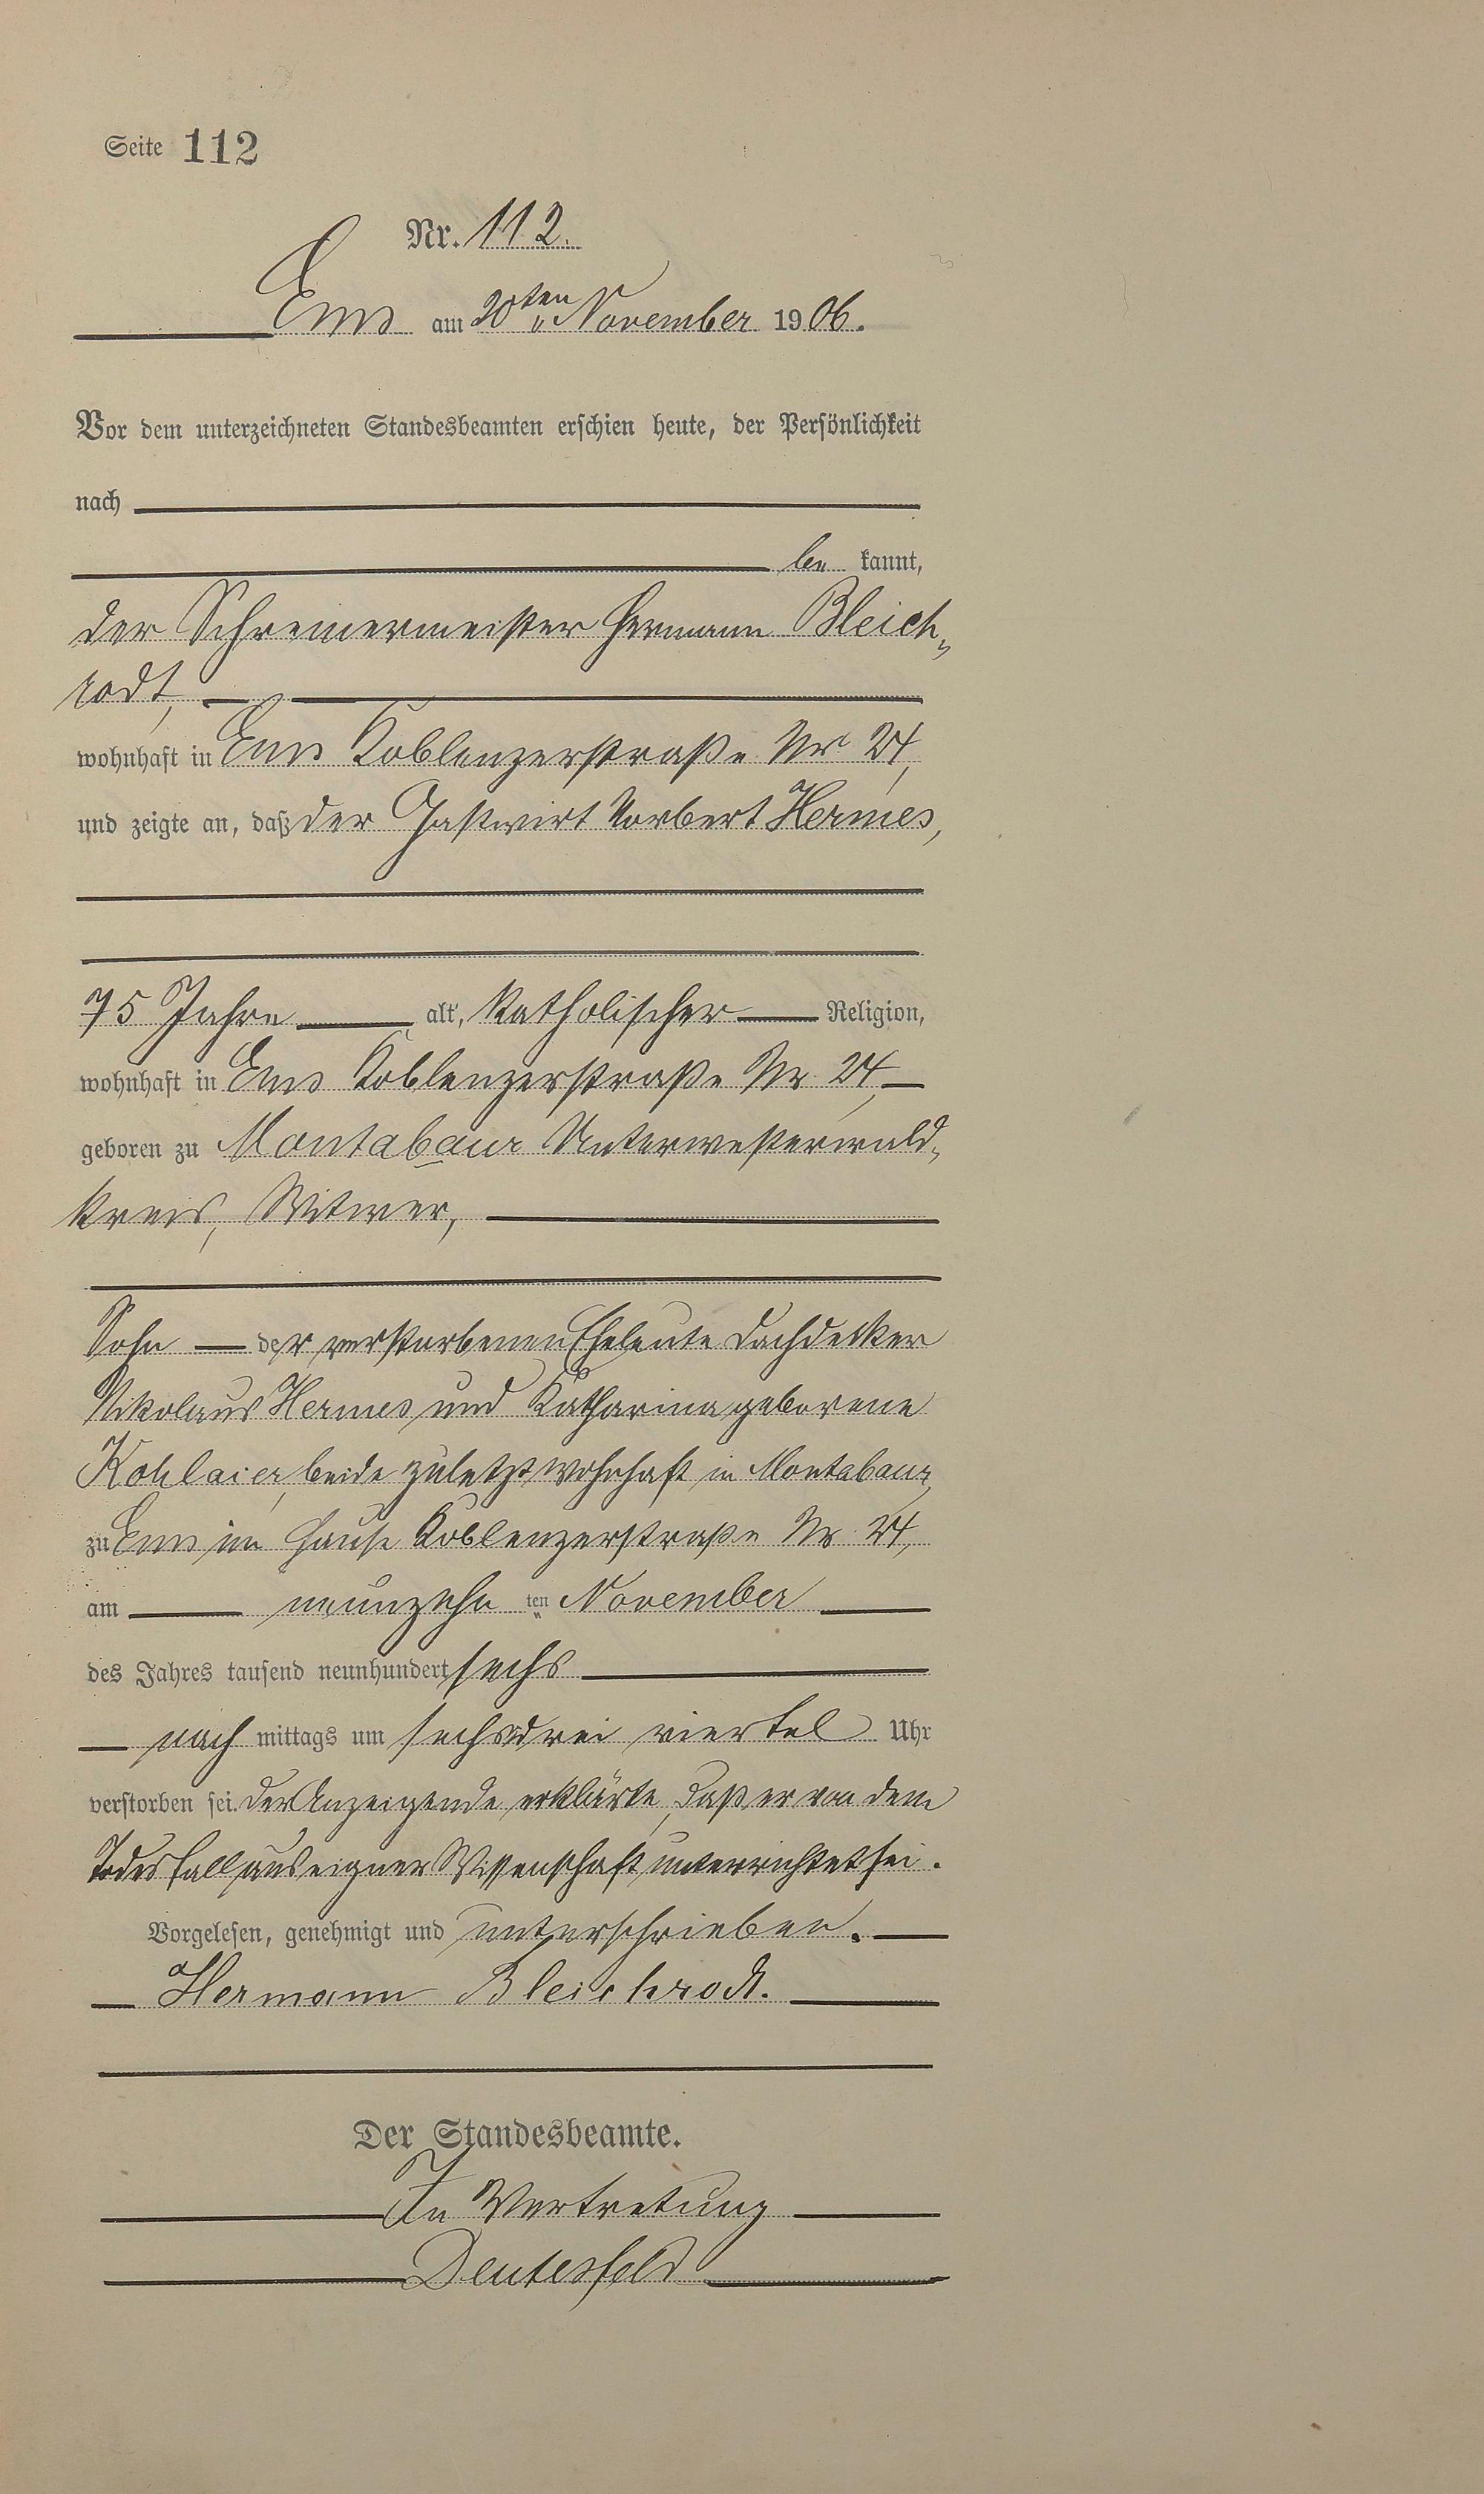 Seite 112
Nr. 112.
Ems am 20ten November 1906.
Vor dem unterzeichneten Standesbeamten erschien heute, der Persönlichkeit
nach
be kannt,
der Schreinermeister Hermann Bleich-
rodt,
wohnhaft in Ems Koblenzerstraße Nr 24,
und zeigte an, daß der Gastwirt Norbert Hermes,
75 Jahre alt, katholischer Religion,
wohnhaft in Ems Koblenzerstraße Nr. 24,
geboren zu Montabaur Unterwesterwald-
kreis, Witwer,
Sohn der verstorbenen Eheleute Dachdecker
Nikolaus Hermes und Katharina geborene
Kohlaier, beide zuletzt wohnhaft in Montabaur,
zu Ems im Hause Koblenzerstraße Nr. 24,
am neunzehn ten November
des Jahres tausend neunhundert sechs
nach mittags um sechsdrei viertel Uhr
verstorben sei. Der Anzeigende erklärte, daß er von dem
Todesfall aus eigner Wissenschaft unterrichtet sei.
Vorgelesen, genehmigt und unterschrieben.
Hermann Bleichrodt.
Der Standesbeamte.
In Vertretung